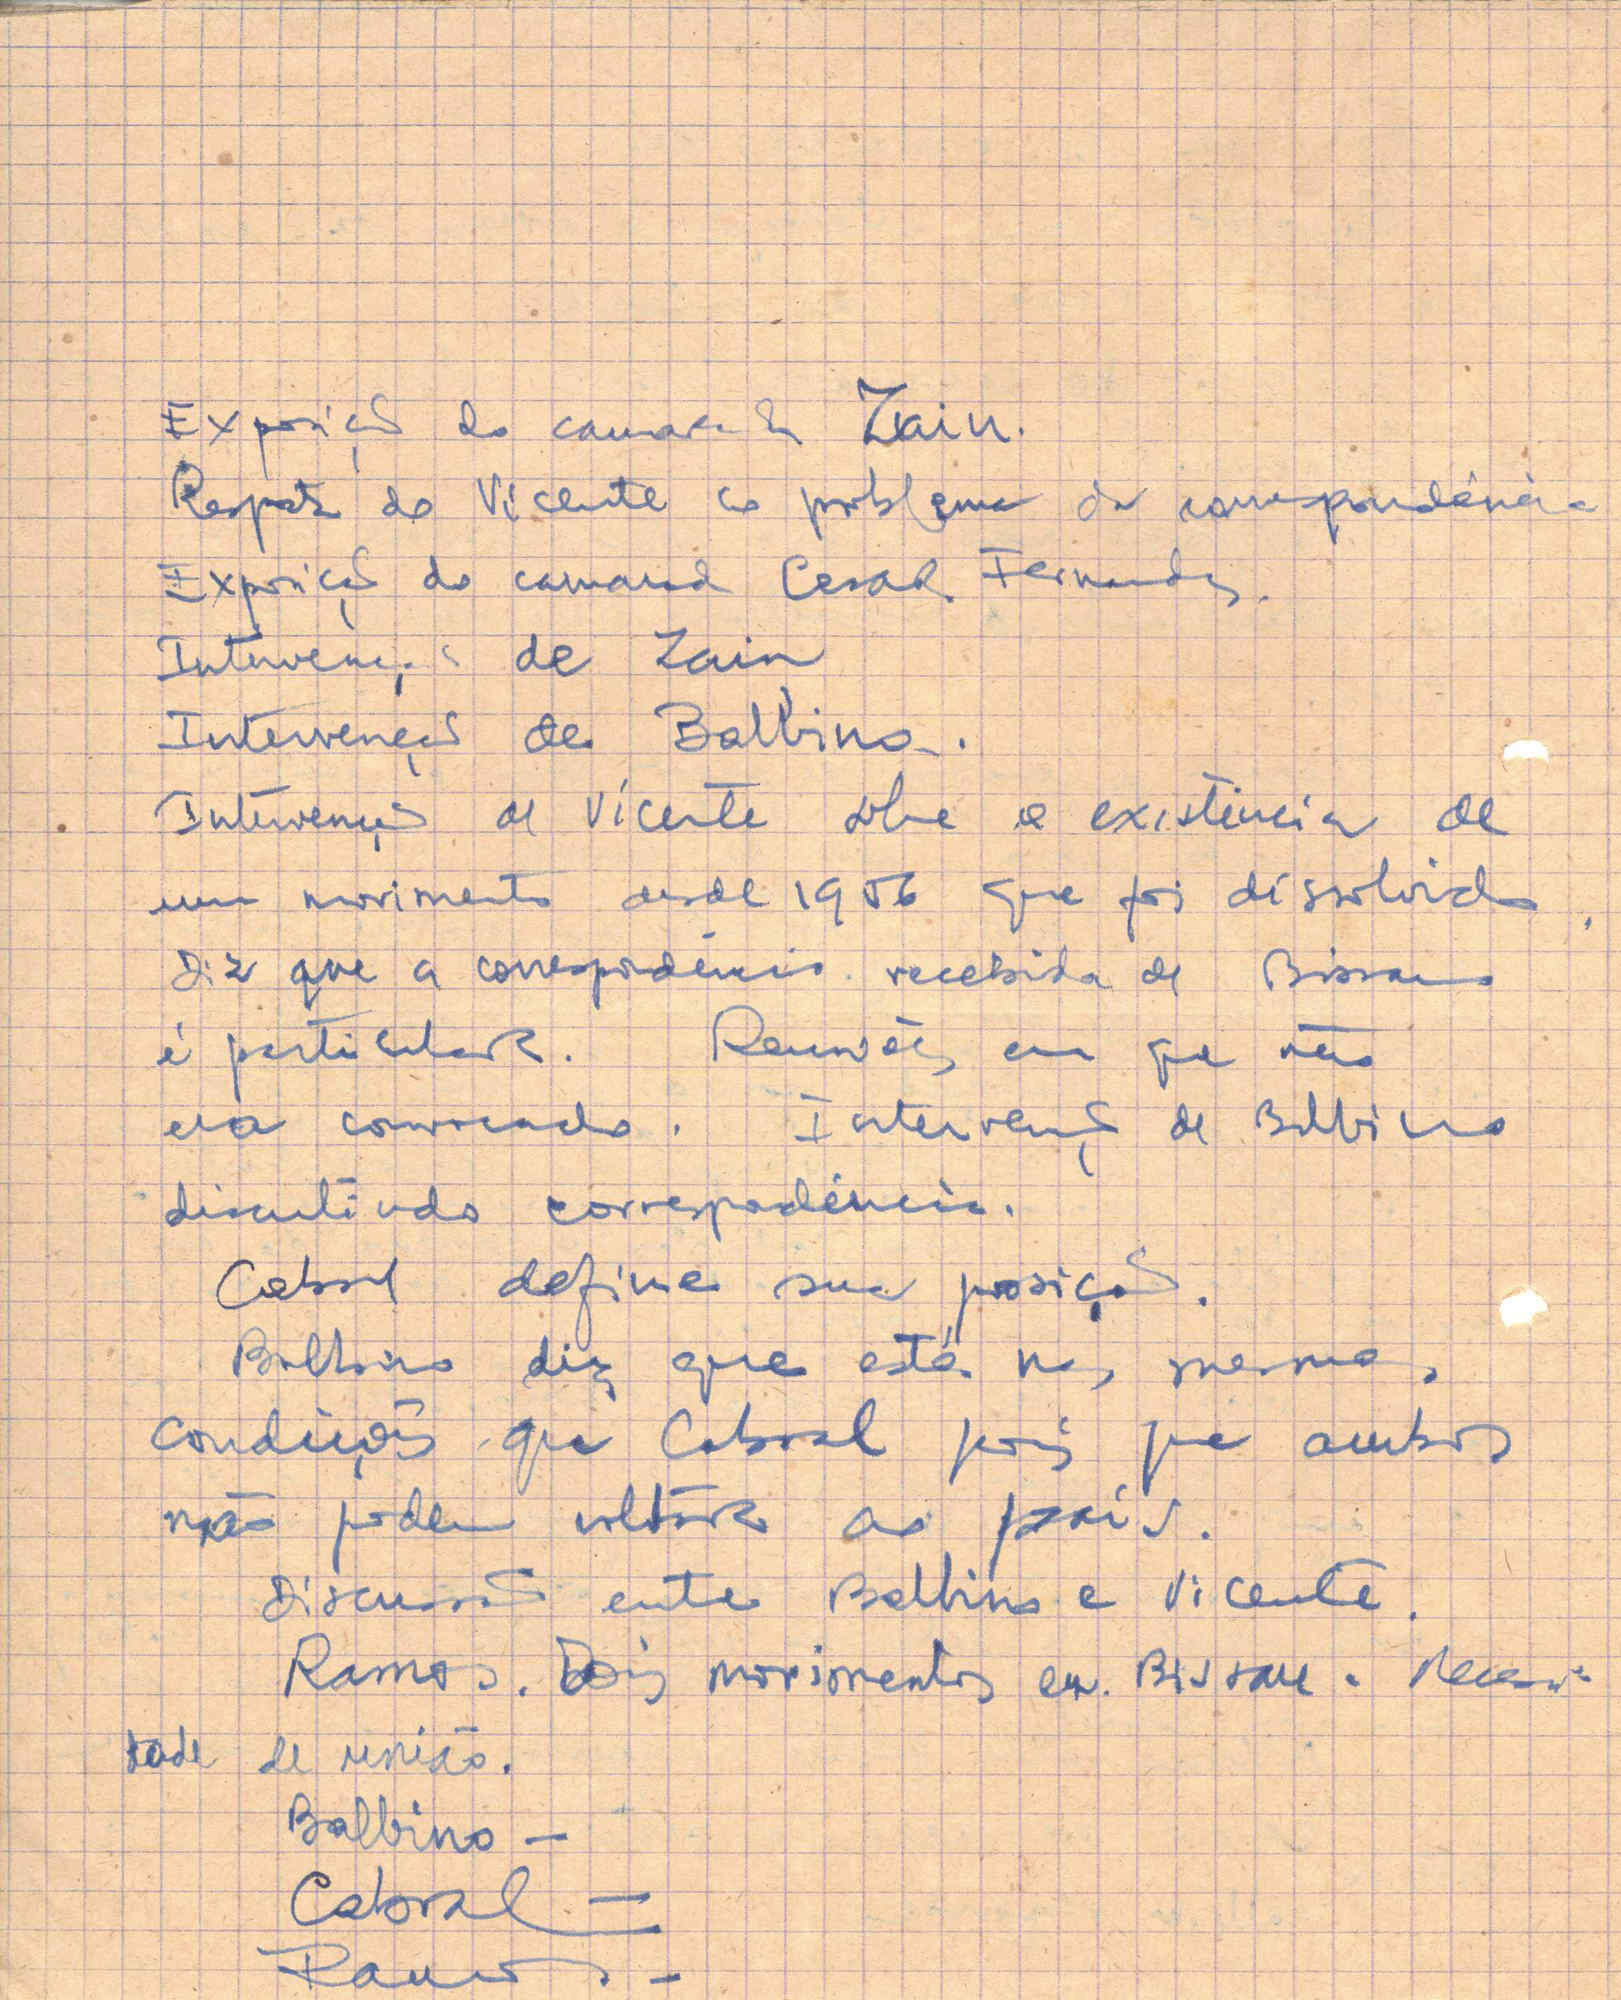 Exposição do camarada Zain.
Resposta do Vicente ao problema da correspondência
Exposição do camarada Cesar Fernandes.
Intervenção de Zain
Intervenção de Balbino.
Intervenção de Vicente sobre a existência de
um movimento desde 1956 que foi dissolvido,
Diz que a correspondência recebida de Bissau
é particular. Reuniões em que não
era convocado. Intervenção de Balbino
discutindo correspondência.
Cabral define sua posição.
Balbino diz que está nas mesmas
condições que Cabral pois que ambos
não podem voltar ao país.
Discussão entre Balbino e Vicente.
Ramos. Dois movimentos em Bissau. Necessi-
dade de união.
Balbino -
Cabral -
Ramos -